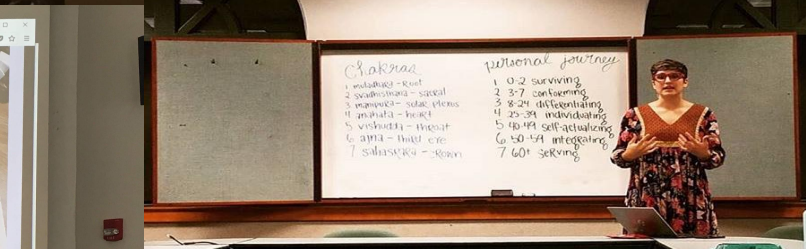 Chakras
1 muladhara - root
2 svadhisthana - sacral
3 manipura - solar plexus
4 anahata - heart
5 vishudda - throat
6 ajna - third eye
7 sahasrara - crown
personal journey
1 0-2 surviving
2 3-7 conforming
3 8-24 differentiating
4 25-39 individuating
5 40-49 self-actualizing
6 50-59 integrating
7 60+ serving